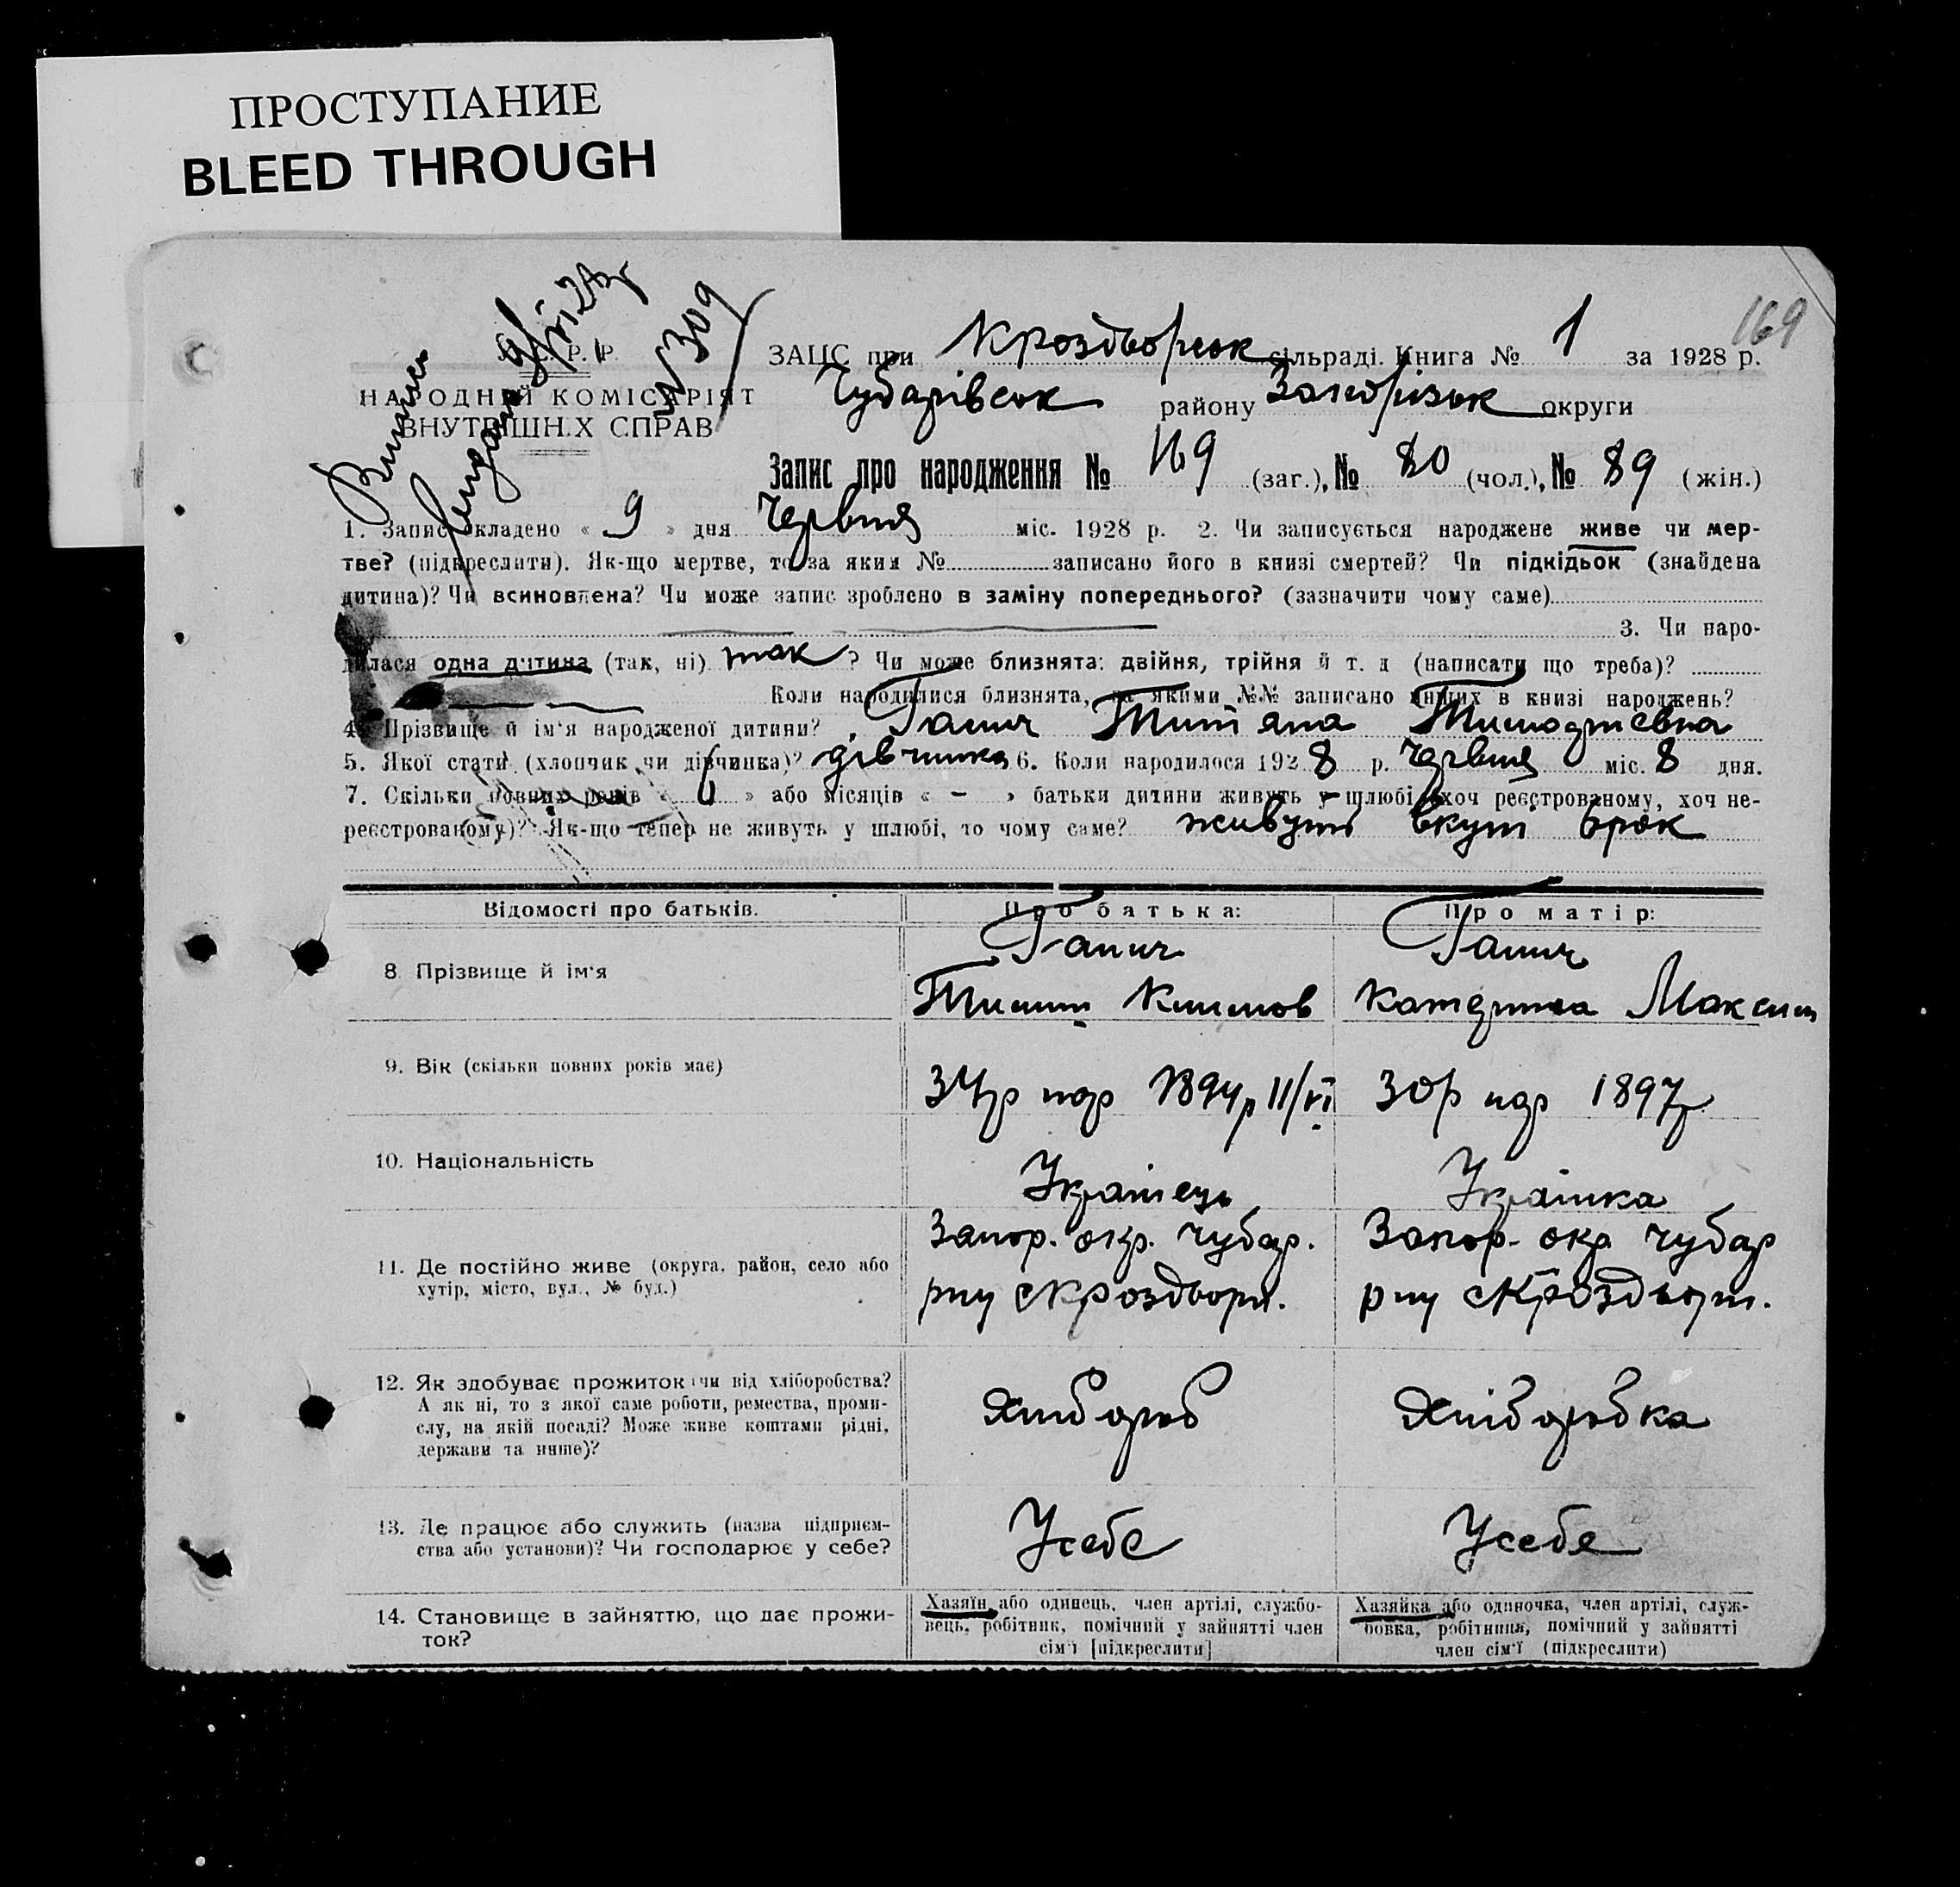 ПРОСТУПАНИЕ
BLEED THROUGH
169
У. С. Р. Р.
НАРОДНІЙ КОМІСАРІЯТ
ВНУТРІШНІХ СПРАВ
Випись
№ 309
ЗАЦС при Кроздворсок сільраді. Книга № 1 за 1928 р.
Чубарівсок району Запорізьк округи
Запис про народження № 169 (заг.), № 80 (чол.), № 89 (жін.)
1. Запис складено « 9 » дня Червня міс. 1928 р. 2. Чи записується народжене живе чи мер-
тве? (підкреслити). Як-що мертве, то за яким № записано його в книзі смертей? Чи підкідьок (знайдена
дитина)? Чи всиновлена? Чи може запис зроблено в заміну попереднього? (зазначити чому саме)
3. Чи наро-
дилася одна дитина (так, ні) так ? Чи може близнята: двійня, трійня й т. д (написати що треба)?
Коли народилися близнята, за якими №№ записано инших в книзі народжень?
4. Прізвище й ім'я народженої дитини? Ганич Титяна Тимофієвна
5. Якої статі (хлопчик чи дівчинка)? дівчинка 6. Коли народилося 1928 р. Червня міс. 8 дня.
7. Скільки повних років « 6 » або місяців « – » батьки дитини живуть у шлюбі (хоч реєстрованому, хоч не-
реєстрованому)? Як-що тепер не живуть у шлюбі, то чому саме? живуть вкупі 6рок
Відомості про батьків. Про батька: Про матір:
8. Прізвище й ім'я Ганич Ганич
Тимиш Климов Катерина Максим
9. Вік (скільки повних років має) 34р нар 1894р 11/VI 30р нар 1897р
10. Національність Українець Українка
11. Де постійно живе (округа, район, село або Запор. окр. Чубар. Запор. окр Чубар
хутір, місто, вул., № буд.) рну с Кроздворн. рну с Кроздворн.
12. Як здобуває прожиток (чи від хліборобства? Хлібороб Хліборобка
А як ні, то з якої саме роботи, ремества, проми-
слу, на якій посаді? Може живе коштами рідні,
держави та инше)?
13. Де працює або служить (назва підприєм- Усебе Усебе
ства або установи)? Чи господарює у себе?
14. Становище в зайняттю, що дає прожи- Хазяїн або одинець, член артілі, службо- Хазяйка або одиночка, член артілі, служ-
ток? вець, робітник, помічний у зайнятті член бовка, робітниця, помічний у зайнятті
сім'ї [підкреслити] член сім'ї (підкреслити)